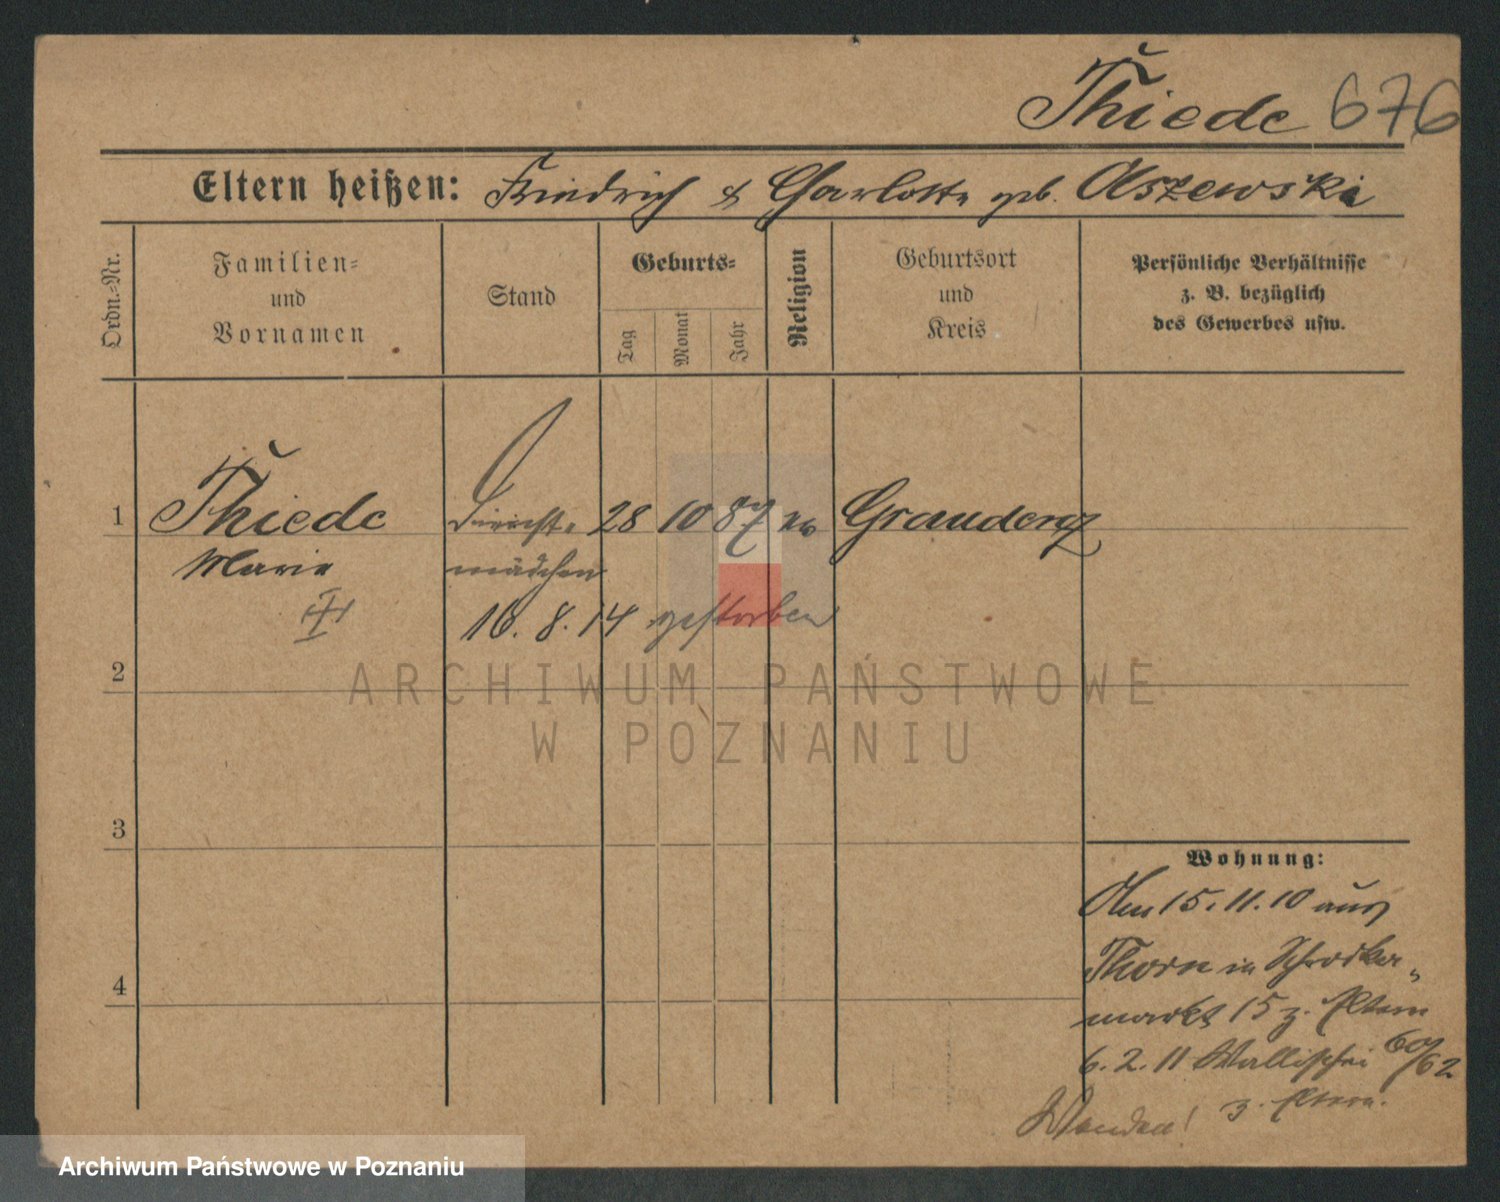 Thiede 676
Eltern heißen: Friedrich & Charlotte geb. Olszewski
Ordn.-Nr.
Familien-
und
Vornamen
Stand
Geburts-
Tag
Monat
Jahr
Religion
Geburtsort
und
Kreis
Persönliche Verhältnisse
z. B. bezüglich
des Gewerbes usw.
1 Thiede Dienst- 28 10 87 ev Graudenz
Marie mädchen
16. 8. 14 gestorben
2
3
4
Wohnung:
Am 15. 11. 10 aus
Thorn in Schrodker-
markt 15 z. Eltern
6. 2. 11 Wallischei 60/62
z. Eltern.
Wenden!
ARCHIWUM PAŃSTWOWE
W POZNANIU
Archiwum Państwowe w Poznaniu